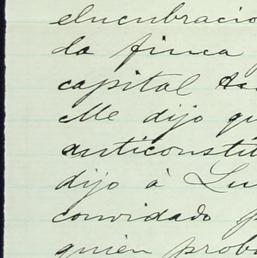 elucubracio
la finca
capital
Me dijo qu
anticonstit
dijo á Lu
convidado p
quien prob